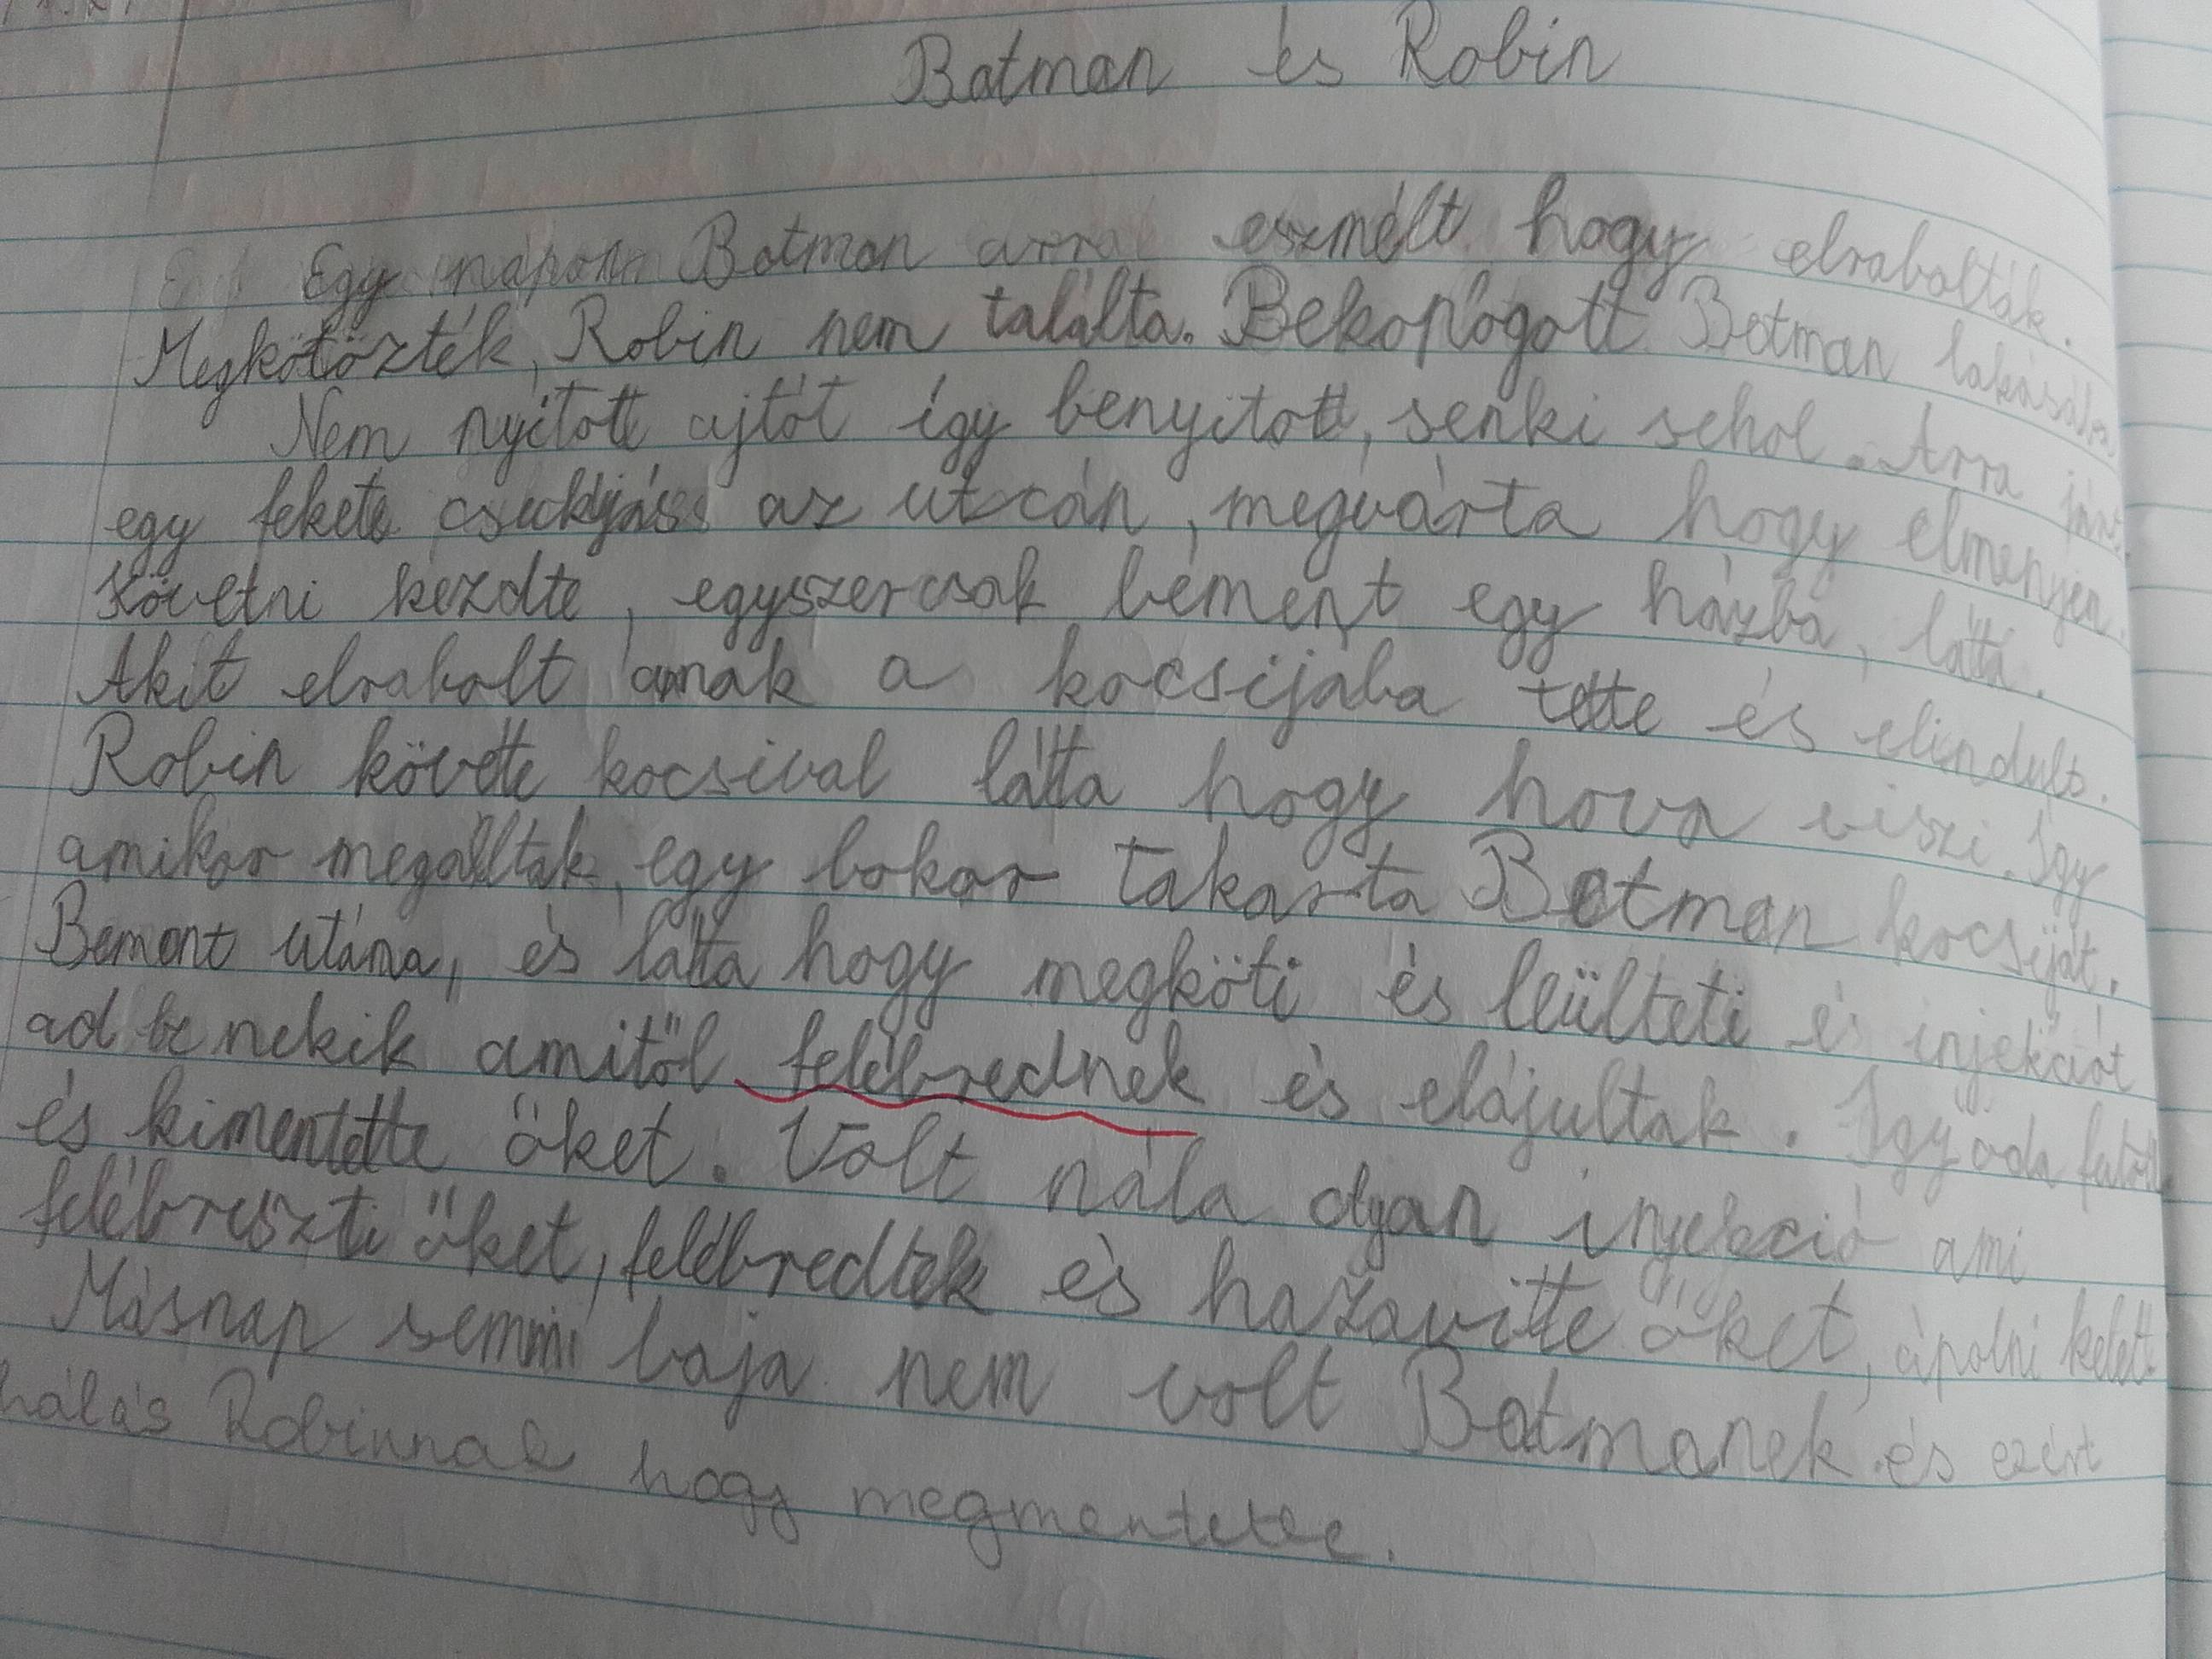 Batman és Robin
Egy napon Batman arra eszmélt hogy elrabolták.
Megkötözték, Robin nem találta. Bekoplogott Batman lakásába
Nem nyitott ajtót így benyitott, senki sehol. Arra járt
egy fekete az utcán, megvárta hogy elmenjen.
Követni kezdte, egyszercsak bement egy házba, látta.
Akit elrabolt annak a kocsijába tette és elindult.
Robin követte kocsival látta hogy hova viszi. Így
amikor megálltak, egy bokor takarta Batman kocsiját.
Bement utána, és látta hogy megköti és leülteti és injekciót
ad be nekik amitől felébrednek és elájultak. Így oda futott
és kimentette őket. Volt nála olyan injekció ami
felébreszti őket, felébredtek és hazavitte őket, ápolni kelett.
Másnap semmi baja nem volt Batmanek és ezért
hálás Robinnak hogy megmentette.